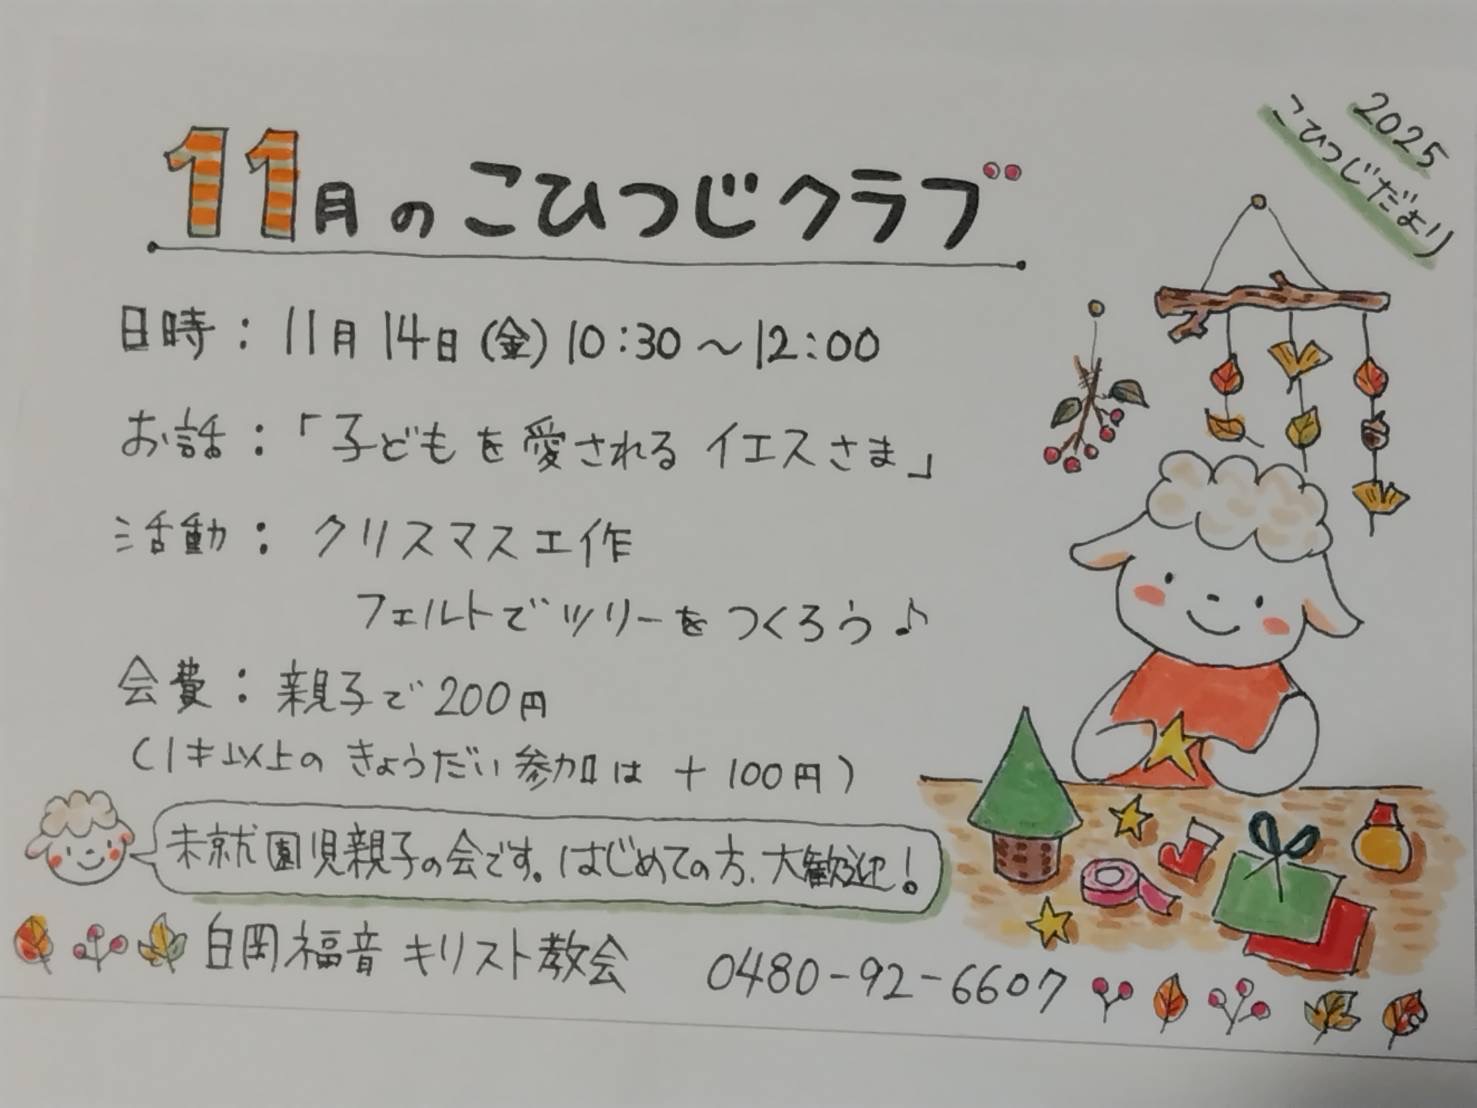 2025
こひつじだより
11月のこひつじクラブ
日時：11月14日(金)10:30～12:00
お話：「子どもを愛されるイエスさま」
活動：クリスマス工作
フェルトでツリーをつくろう♪
会費：親子で200円
(1才以上のきょうだい参加は＋100円)
未就園児親子の会です。はじめての方、大歓迎！
白岡福音キリスト教会 0480-92-6607